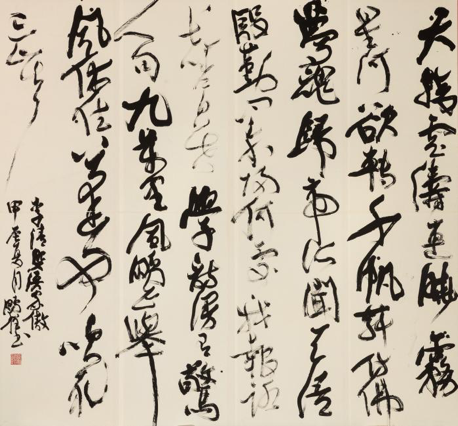 天接雲濤連曉霧
星河欲轉千帆舞仿佛
夢魂歸帝所聞天語
殷勤問我歸何處我報路
長嗟日暮學詩謾有驚
人句九萬里風鵬正舉
風休住蓬舟吹取
三山去
李清照漁家傲
甲